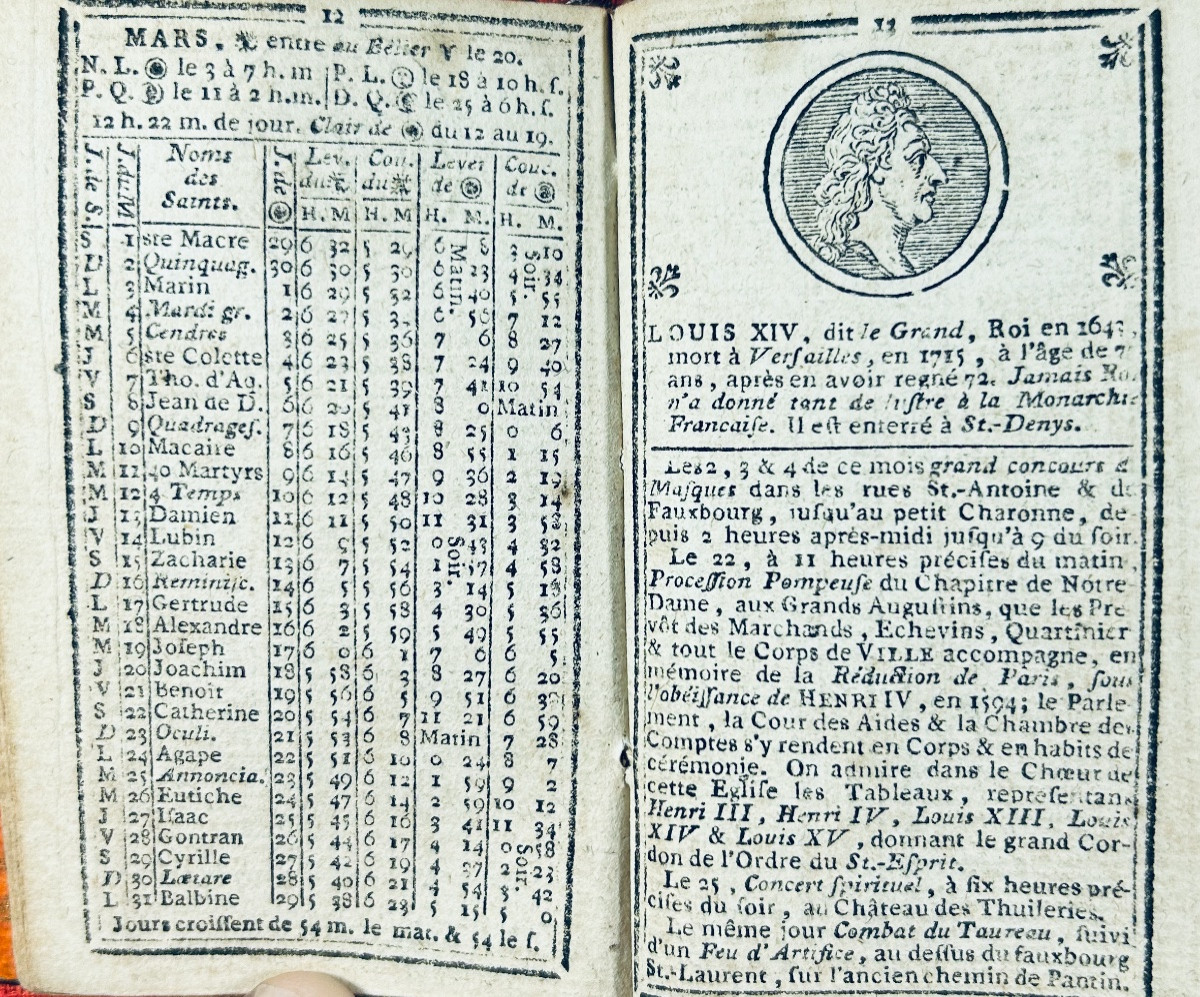 12
MARS. entre au Bélier ♈ le 20.
N. L. le 3 à 7 h. m P. L. le 18 à 10 h. ſ.
P. Q. le 11 à 2 h. m. D. Q. le 25 à 6 h. ſ.
12 h. 22 m. de jour. Clair de du 12 au 19.
J. de S. J. du M Noms des Saints. J. de Lev. du Cou. du Lever de Couc. de
H. M H. M H. M. H. M.
S 1 ste Macre 29 6 32 5 6 8 3 10
D 2 Quinquag. 30 6 30 5 30 6 Matin. 23 4 Soir. 34
L 3 Marin 1 6 29 5 32 6 40 5 55
M 4 Mardi gr. 2 6 27 5 6 56 7 12
M 5 Cendres 3 6 25 5 36 7 6 8 27
J 6 ste Colette 4 6 23 5 38 7 24 9 40
V 7 Tho. d'Aq. 5 6 21 5 39 7 41 10 54
S 8 Jean de D. 6 6 20 5 41 8 0 Matin
D 9 Quadrageſ. 7 6 18 5 43 8 25 0 6
L 10 Macaire 8 6 16 5 46 8 55 1 15
M 11 40 Martyrs 9 6 14 5 47 9 36 2 19
M 12 4 Temps 10 6 12 5 48 10 28 3 14
J 13 Damien 11 6 11 5 50 11 31 3 58
V 14 Lubin 12 6 9 5 52 0 Soir. 43 4 32
S 15 Zacharie 13 6 7 5 54 1 57 4 58
D 16 Reminiſc. 14 6 5 5 56 3 14 5 18
L 17 Gertrude 15 6 3 5 58 4 30 5 36
M 18 Alexandre 16 6 2 5 59 5 49 5 55
M 19 Joſeph 17 6 0 6 1 7 6 6 5
J 20 Joachim 18 5 58 6 3 8 27 6 20
V 21 Benoît 19 5 56 6 5 9 51 6
S 22 Catherine 20 5 54 6 7 11 21 6 59
D 23 Oculi. 21 5 53 6 8 Matin 7 28
L 24 Agape 22 5 51 6 10 0 24 8 7
M 25 Annoncia. 23 5 49 6 12 1 59 9 2
M 26 Eutiche 24 5 47 6 14 2 59 10 12
J 27 Iſaac 25 5 45 6 16 3 41 11 34
V 28 Gontran 26 5 44 6 17 4 14 0 Soir. 58
S 29 Cyrille 27 5 42 6 19 4 37 2 23
D 30 Lætare 28 5 40 6 21 4 54 3 42
L 31 Balbine 29 5 38 6 23 5 15 5 0
Jours croiſſent de 54 m. le mat. & 54 le ſ.
13
LOUIS XIV, dit le Grand, Roi en 1643,
mort à Verſailles, en 1715, à l'âge de
ans, après en avoir regné 72. Jamais
n'a donné tant de luſtre à la Monarchie
Francaiſe. Il eſt enterré à St.-Denys.
Les 2, 3 & 4 de ce mois grand concours
Maſques dans les rues St.-Antoine &
Fauxbourg, juſqu'au petit Charonne, de-
puis 2 heures après-midi juſqu'à 9 du ſoir.
Le 22, à 11 heures préciſes du matin,
Proceſſion Pompeuſe du Chapitre de Nôtre-
Dame, aux Grands Auguſtins, que les Pre
vôt des Marchands, Echevins, Quartinier
& tout le Corps de VILLE accompagne, en
mémoire de la Réduction de Paris, ſous
l'obéiſſance de HENRI IV, en 1594; le Parle-
ment, la Cour des Aides & la Chambre des
Comptes s'y rendent en Corps & en habits de
cérémonie. On admire dans le Chœur de
cette Egliſe les Tableaux, repréſentans
Henri III, Henri IV, Louis XIII, Louis
XIV & Louis XV, donnant le grand Cor-
don de l'Ordre du St.-Eſprit.
Le 25, Concert ſpirituel, à ſix heures pré-
ciſes du ſoir, au Château des Thuileries.
Le même jour Combat du Taureau, ſuivi
d'un Feu d'Artifice, au deſſus du fauxbourg
St.-Laurent, ſur l'ancien chemin de Pantin.